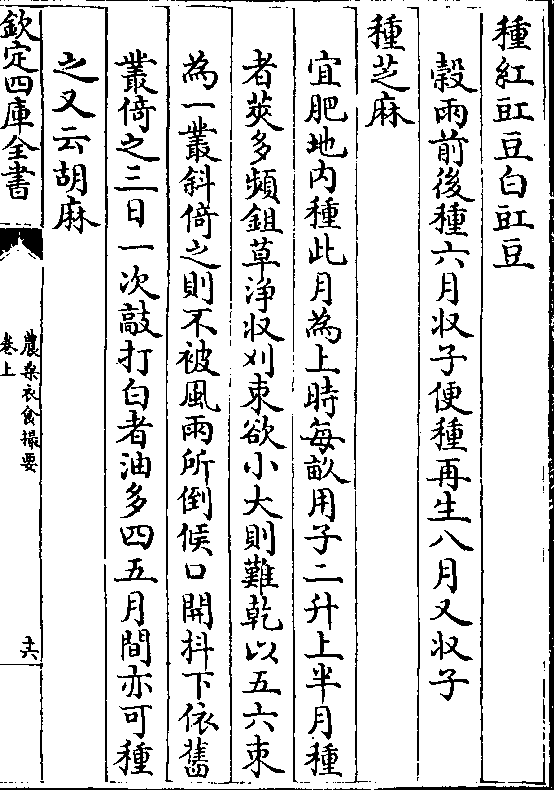 種紅豇豆白豇豆
穀雨前後種六月收子便種再生八月又收子
種芝麻
宜肥地内種此月為上時每畝用子二升上半月種
者莢多頻鉏草淨收刈束欲小大則難乾以五六束
為一叢斜倚之則不被風雨所倒候口開抖下依舊
叢倚之三日一次敲打白者油多四五月間亦可種
之又云胡麻
欽定四庫全書
農桒衣食撮要
卷上
十六